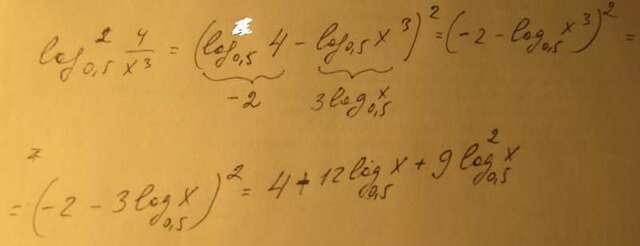 log²₀,₅ 4/x³ = (log₀,₅ 4 − log₀,₅ x³)² = (−2 − log₀,₅ x³)² =
−2 3 log₀,₅ x
= (−2 − 3 log₀,₅ x)² = 4 + 12 log₀,₅ x + 9 log²₀,₅ x